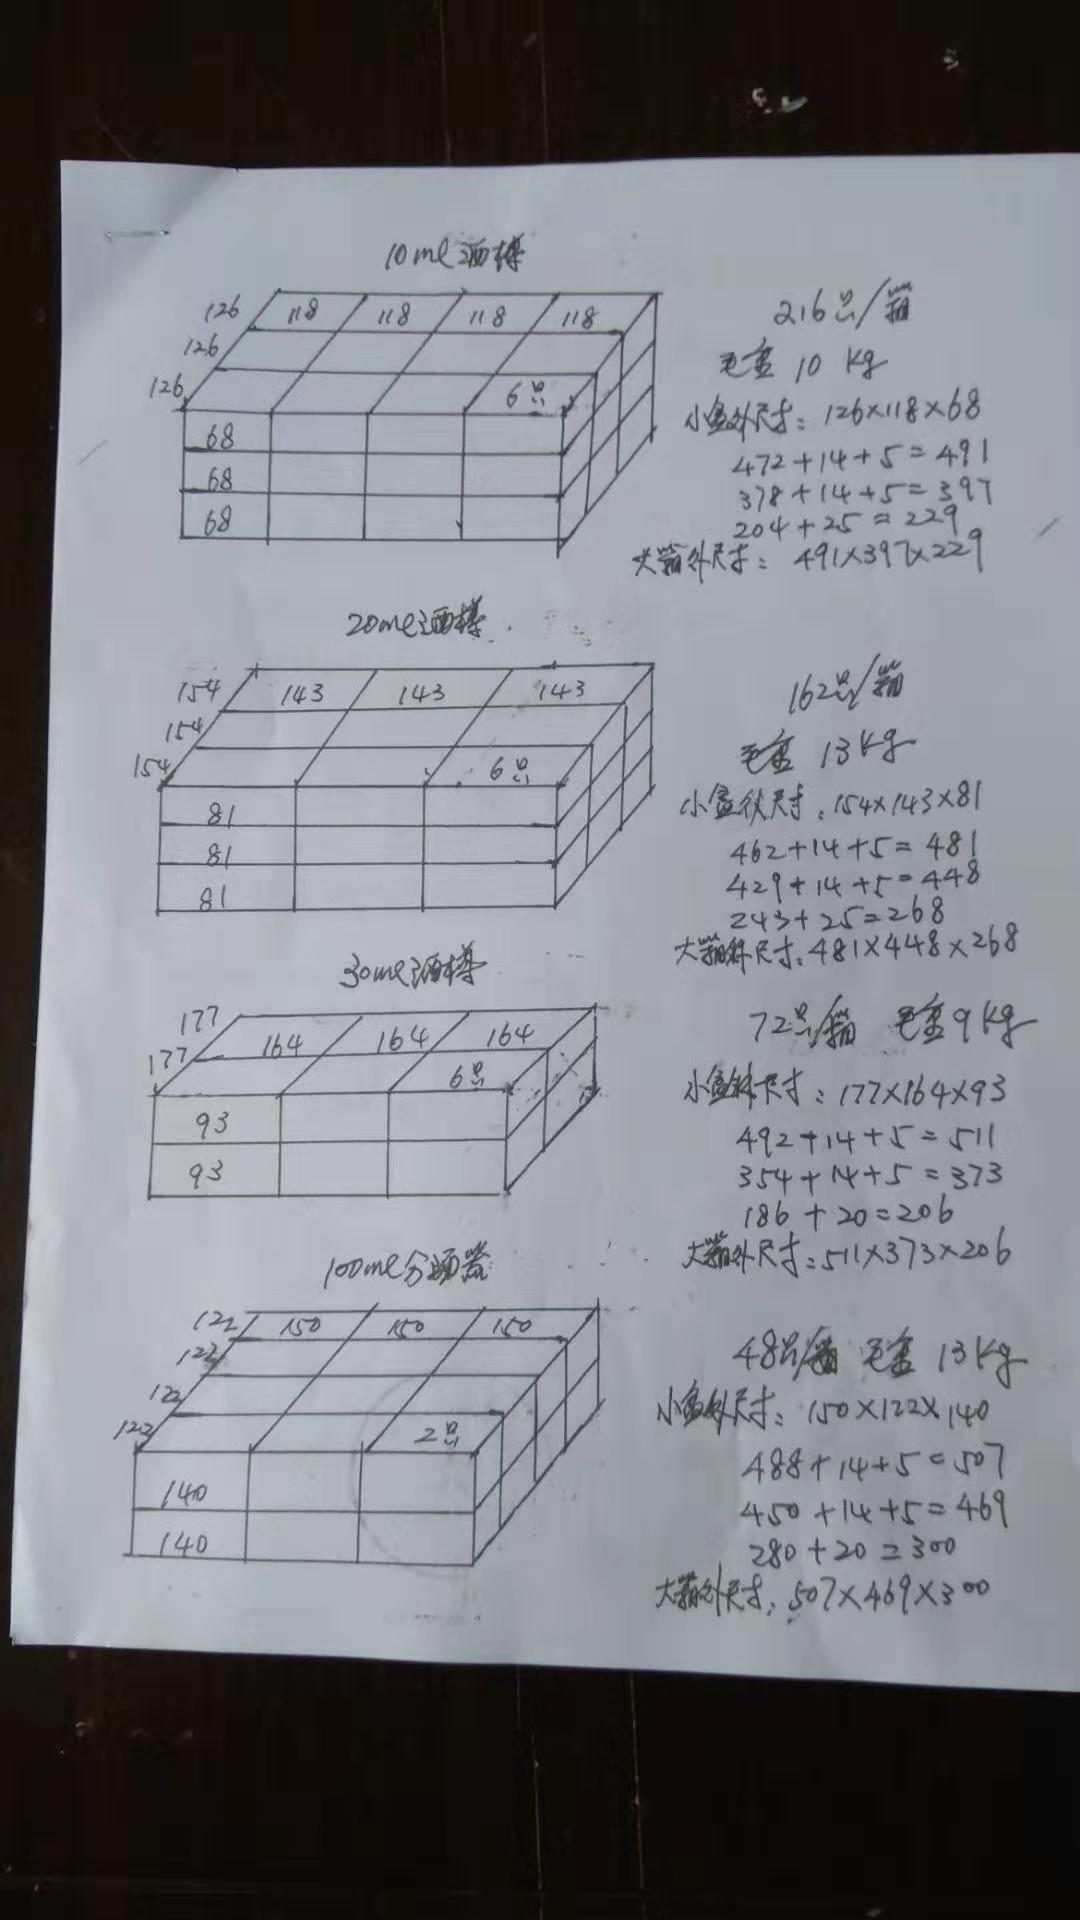 10ml酒樽
126 118 118 118 118
126
126 6只
68
68
68
216只/箱
毛重 10 kg
小盒外尺寸: 126×118×68
472+14+5=491
378+14+5=397
204+25=229
大箱外尺寸: 491×397×229
20ml酒樽
154 143 143 143
154
154 6只
81
81
81
162只/箱
毛重 13kg
小盒外尺寸: 154×143×81
462+14+5=481
429+14+5=448
243+25=268
大箱外尺寸: 481×448×268
30ml酒樽
177 164 164 164
177 6只
93
93
72只/箱 毛重9kg
小盒外尺寸: 177×164×93
492+14+5=511
354+14+5=373
186+20=206
大箱外尺寸: 511×373×206
100ml分酒器
122 150 150 150
122
122
122 2只
140
140
48只/箱 毛重 13kg
小盒外尺寸: 150×122×140
488+14+5=507
450+14+5=469
280+20=300
大箱外尺寸: 507×469×300